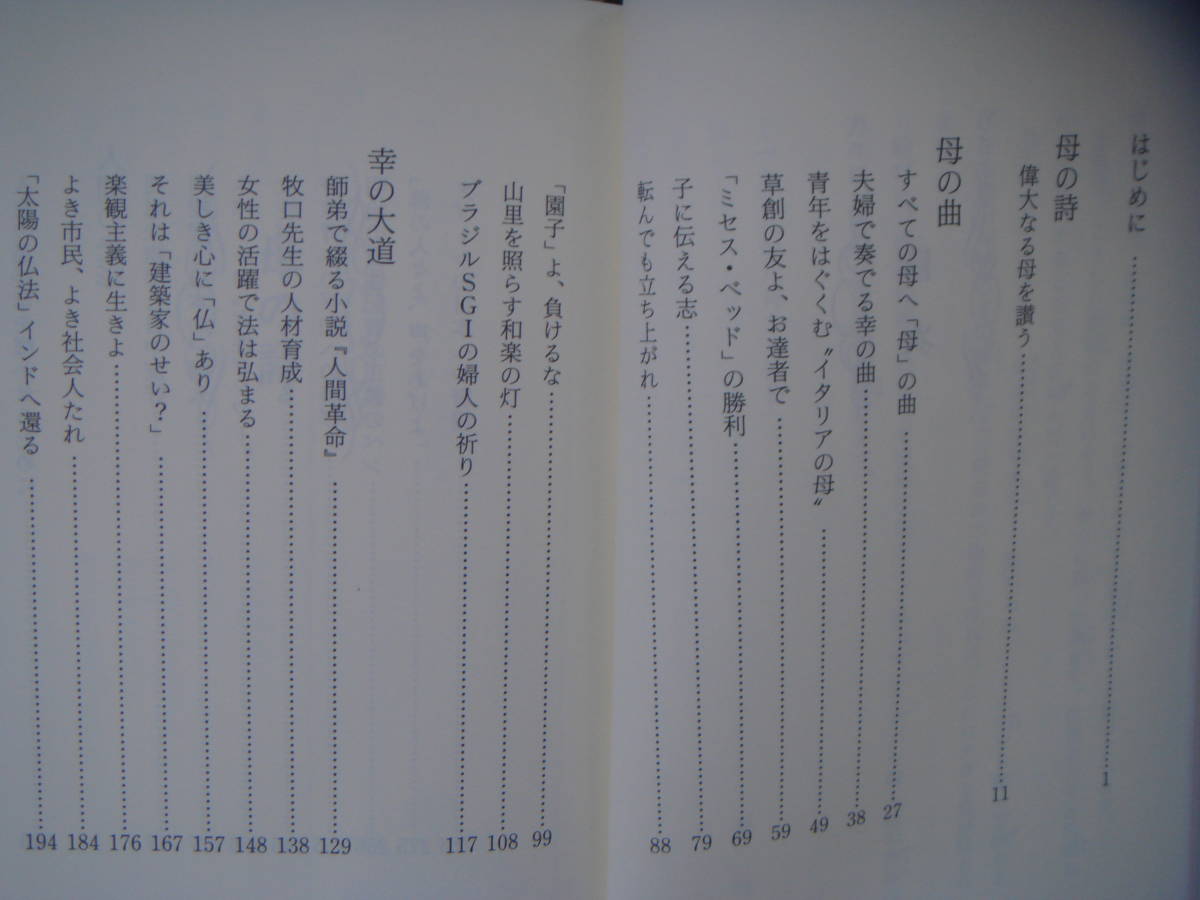 はじめに……1
母の詩
偉大なる母を讃う……11
母の曲
すべての母へ「母」の曲……27
夫婦で奏でる幸の曲……38
青年をはぐくむ〝イタリアの母〟……49
草創の友よ、お達者で……59
「ミセス・ベッド」の勝利……69
子に伝える志……79
転んでも立ち上がれ……88
「園子」よ、負けるな……99
山里を照らす和楽の灯……108
ブラジルSGIの婦人の祈り……117
幸の大道
師弟で綴る小説『人間革命』……129
牧口先生の人材育成……138
女性の活躍で法は弘まる……148
美しき心に「仏」あり……157
それは「建築家のせい？」……167
楽観主義に生きよ……176
よき市民、よき社会人たれ……184
「太陽の仏法」インドへ還る……194